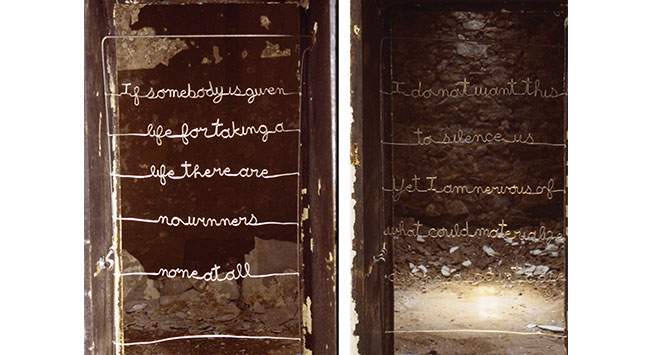 If somebody is given
life for taking a
life there are
no winners
none at all
I do not want this
to silence us
Yet I am nervous of
what could materialize